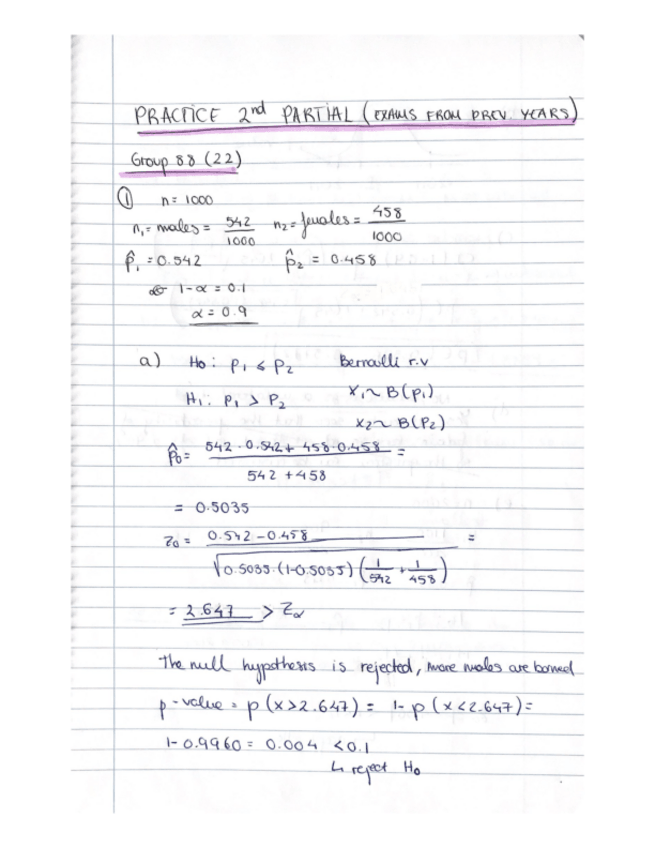 PRACTICE 2nd PARTIAL (EXAMS FROM PREV. YEARS)
Group 88 (22)
① n = 1000
n₁ = males = 542/1000 n₂ = females = 458/1000
p̂₁ = 0.542 p̂₂ = 0.458
1-α = 0.1
α = 0.9
a) H₀: p₁ ≤ p₂ Bernoulli r.v
H₁: p₁ > p₂ x₁ ~ B(p₁)
x₂ ~ B(p₂)
p̂₀ = (542·0.542 + 458·0.458)/(542+458) =
= 0.5035
z₀ = (0.542-0.458)/√(0.5035·(1-0.5035)(1/542 + 1/458)) =
= 2.647 > Zα
The null hypothesis is rejected, more males are borned
p-value = p(x>2.647) = 1-p(x<2.647) =
1-0.9960 = 0.004 < 0.1
↳ reject H₀